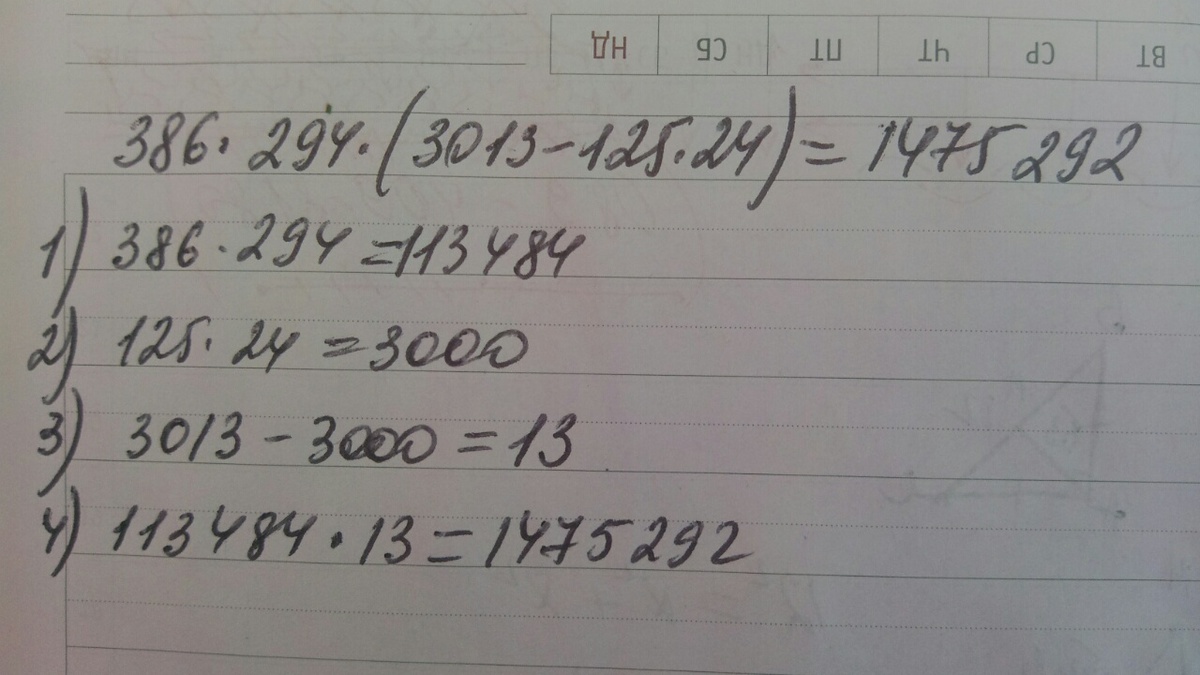 НД СБ ПТ ЧТ СР ВТ
386· 294·(3013-125·24)= 1475292
1) 386·294=113484
2) 125·24=3000
3) 3013-3000=13
4) 113484·13=1475292